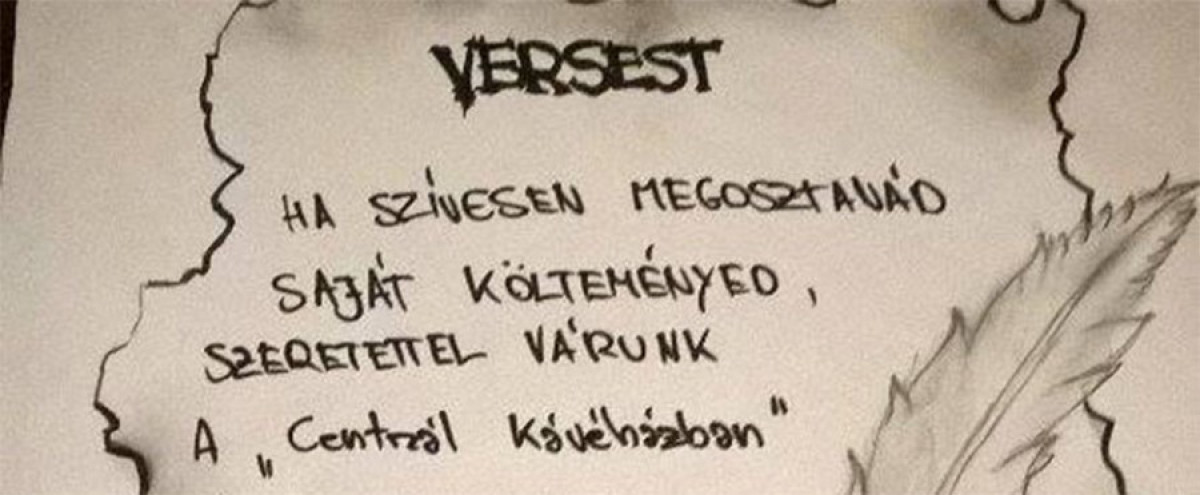 VERSEST
HA SZÍVESEN MEGOSZTANÁD
SAJÁT KÖLTEMÉNYED,
SZERETETTEL VÁRUNK
A „Centrál Kávéházban"